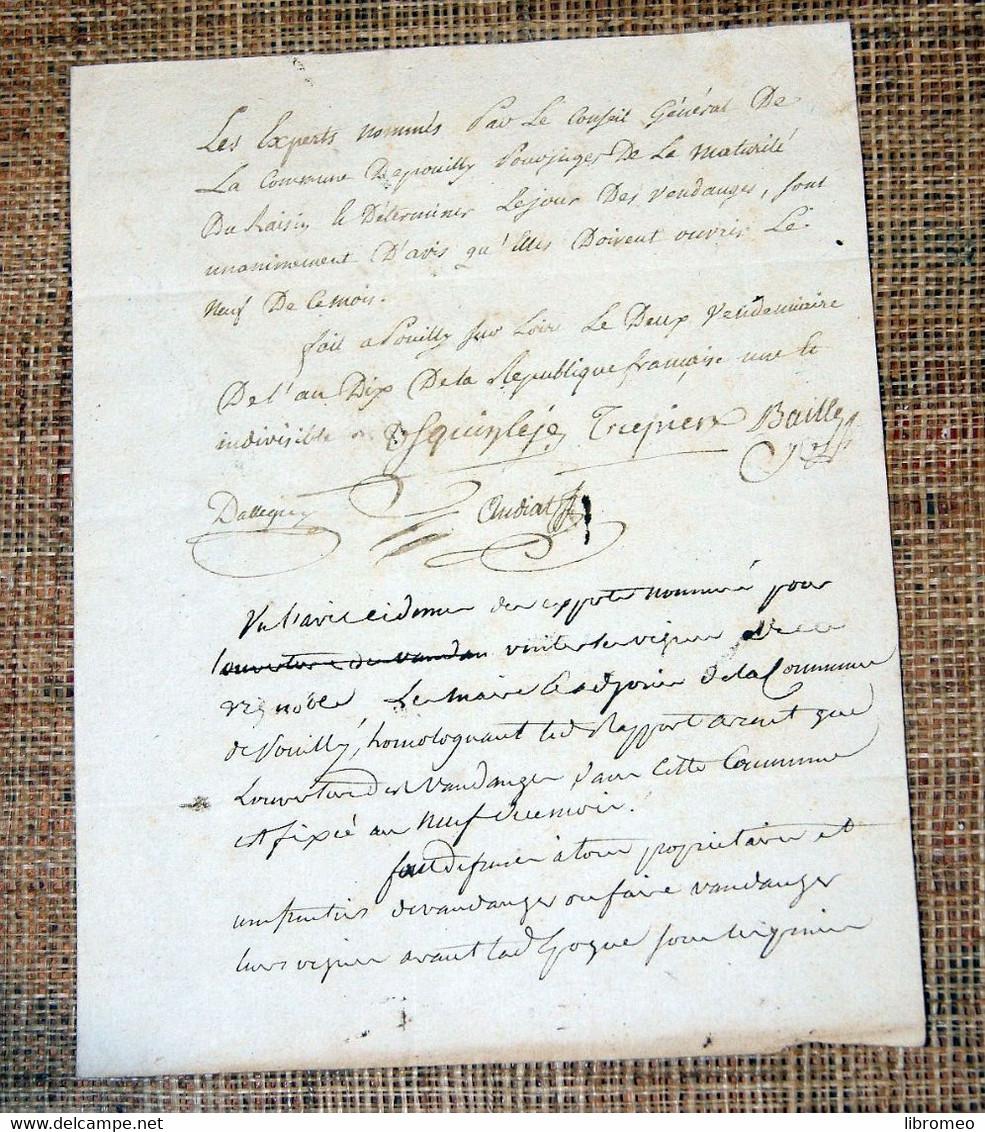 Les Experts nommés Par Le Conseil Général De
La Commune Depouilly Pour juger De La maturité
Du Raisin & Déterminer Lejour Des vendanges, sont
unanimement D'avis qu'Elles Doivent ouvrir Le
neuf De Cemois.
fait a Pouilly sur Loire Le Deux Vendemiaire
De l'an Dix Dela Republique francaise une &
indivisible Bailly
Dallegny Audiat
Vu l'avis cidessus des experts nommés pour
l'ouverture des vandan visiter les vignes de ce
vignoble Le maire & adjoint dela Commune
de Pouilly, homologuant led Rapport arretent que
Louverture des Vandanges dans Cette Commune
est fixée au Neuf de cemois.
fait defense à tous propriétaires et
usufruitiers de vandanger ou faire vandanger
leurs vignes avant lad Epoque sous les peines
delcampe.net
libromeo